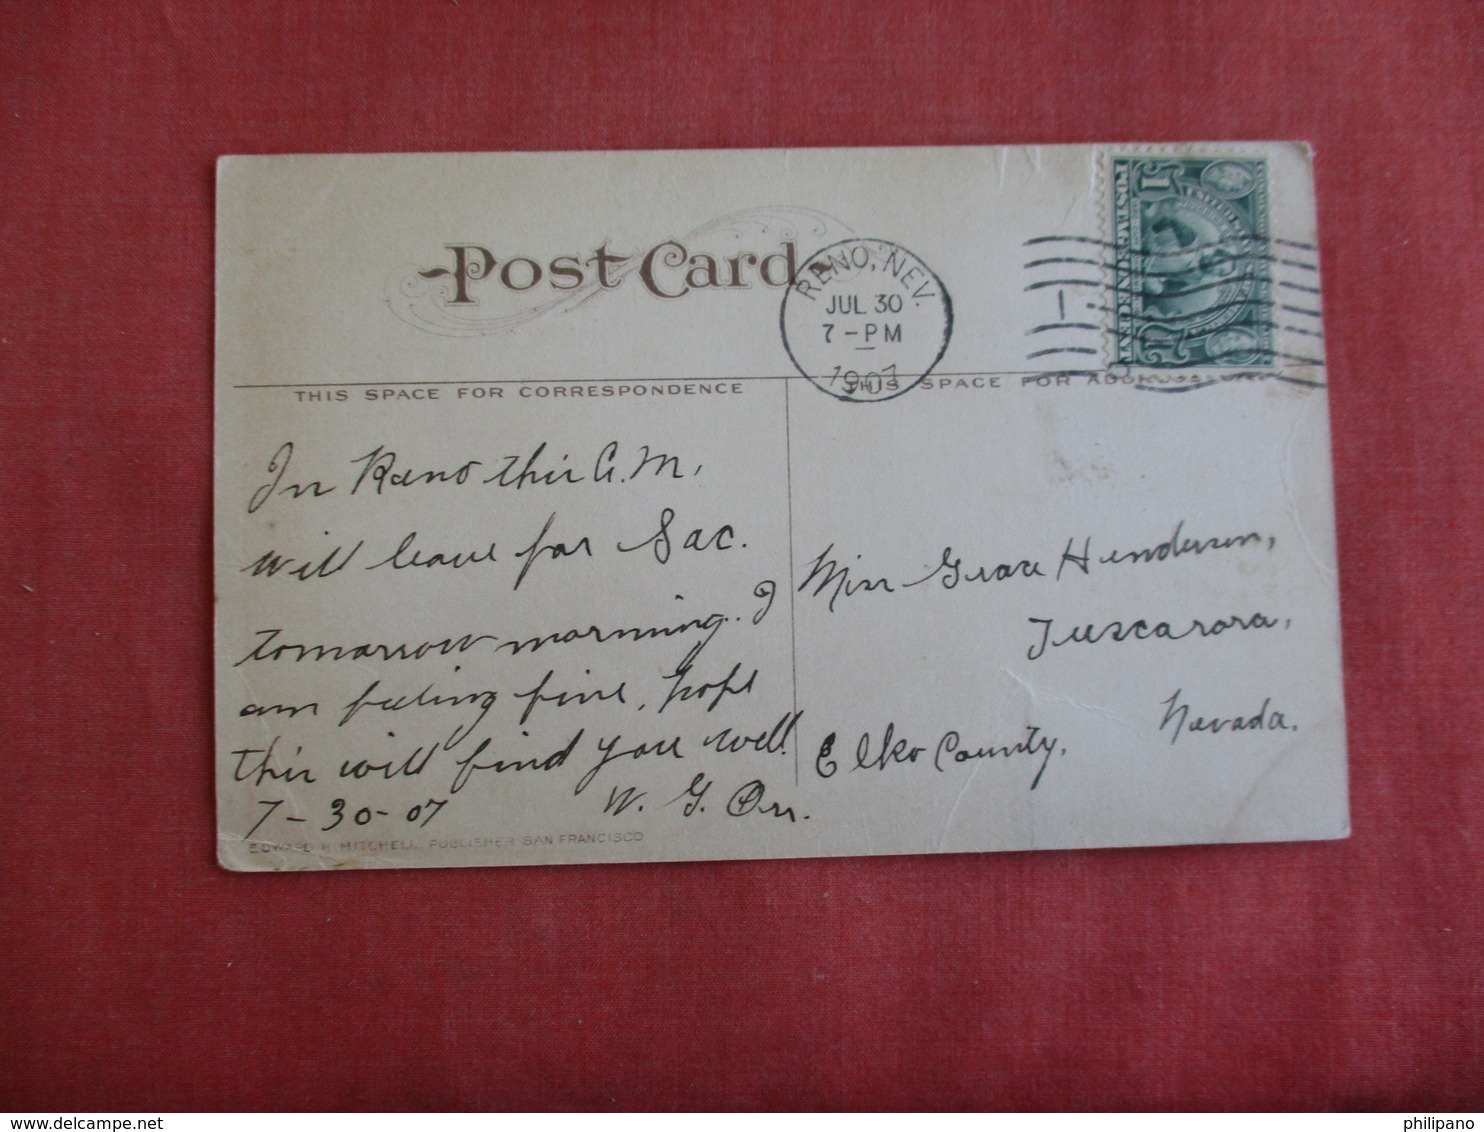 Post Card
RENO, NEV.
JUL 30
7-PM
1907
1
POSTAGE ONE CENT
1
THIS SPACE FOR CORRESPONDENCE
THIS SPACE FOR
In Reno this A.M.
will leave for Sac.
tomorrow morning. I
am feeling fine, hope
this will find you well.
7-30-07 W. G. Orr.
Miss Grace Henderson,
Tuscarora,
Elko County, Nevada.
EDWARD H. MITCHELL, PUBLISHER SAN FRANCISCO
philipano